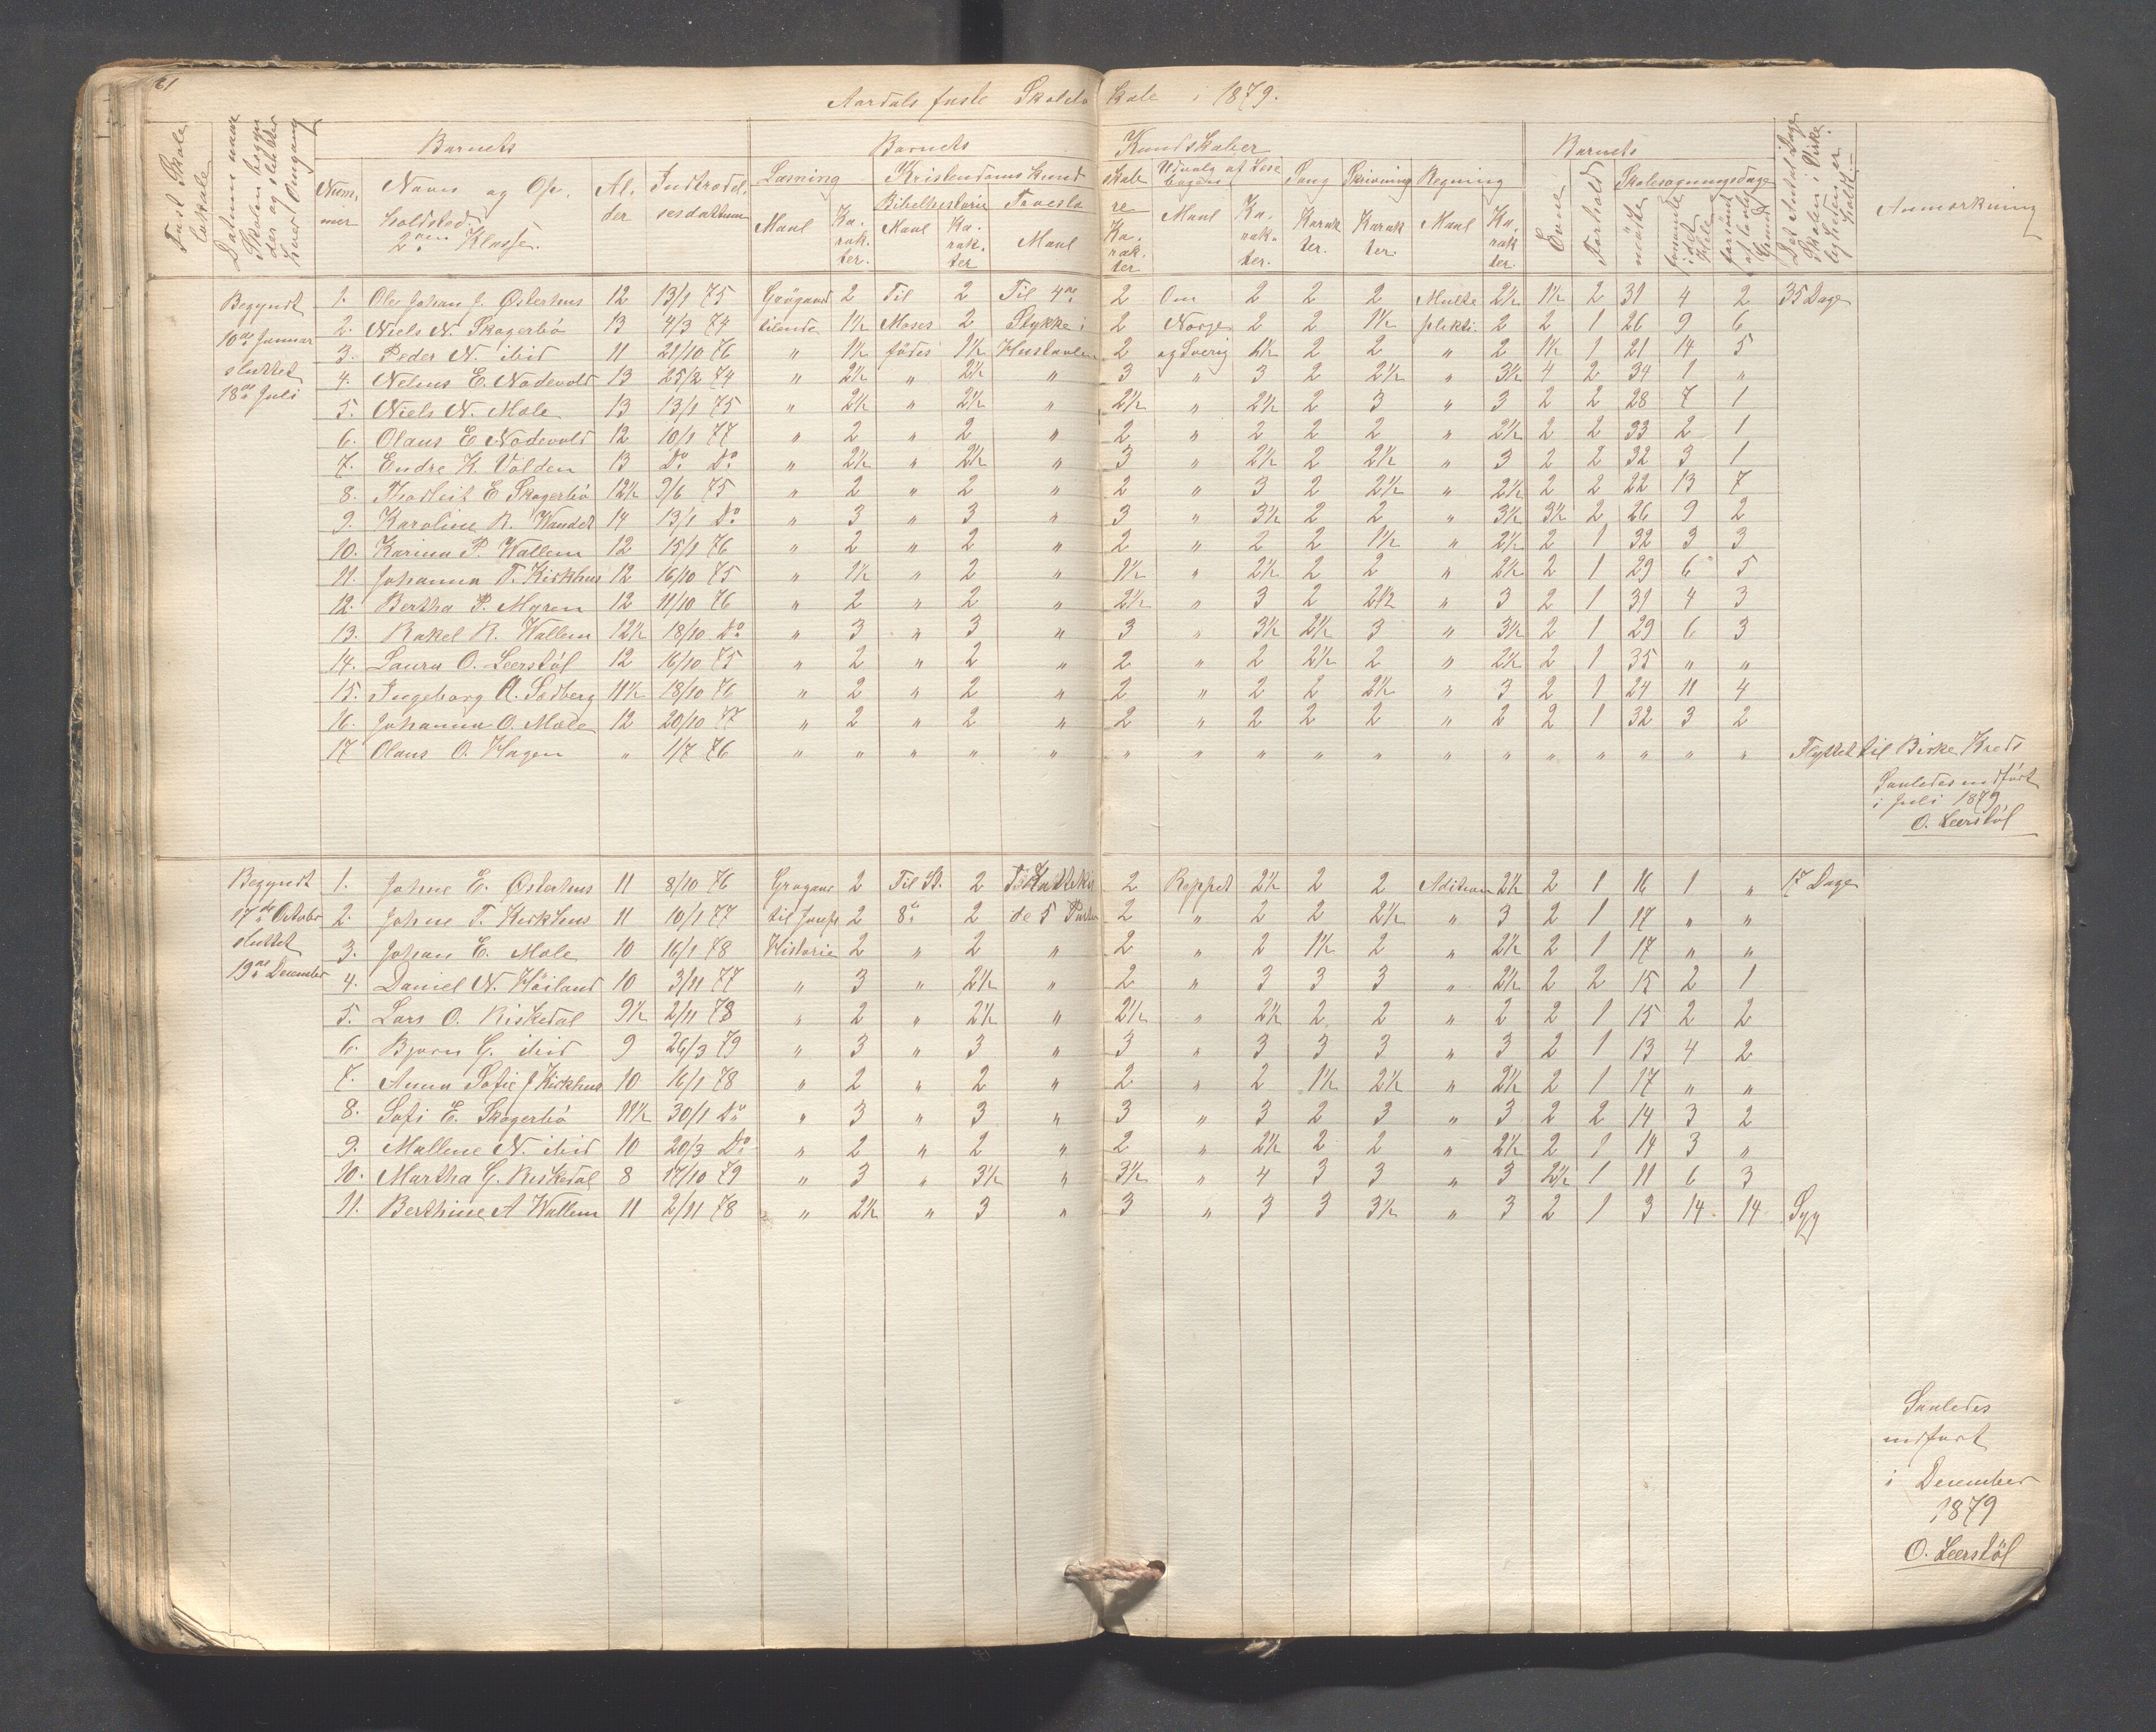 61
Aardals faste Skolelokale i 1879.
Fast Skolelokale
Datum naar Skolen begynder og slutter hver Omgang
Barnets
Nummer
Navn og Opholdsted. 2den Klasse.
Alder
Indtrædelsesdattum
Barnets Kundskaber
Læsning
Maal
Karakter.
Kristendoms Kundskab
Bibelhistorie
Maal
Karakter
Troeslære
Maal
Karakter
Udvalg af Læsebogen
Maal
Karakter.
Sang
Karakter.
Skrivning
Karakter.
Regning
Maal
Karakter.
Barnets
Evne
Forhold
Skolesøgningsdage
mødte
forsømte i det Hele
forsømt af lovlig Grund
Det Antal Dage Skolen i Virkeligheden er holdt
Anmærkning
Begyndt 10de Januar sluttet 18de Juli
1. Ole Johan J. Østerhus 12 13/1 75 Grøgaard 2 Til 2 Til 4de 2 Om 2 2 2 Multi 2½ 1½ 2 31 4 2 35 Dage
2. Niels N. Skogerbö 13 4/3 74 tilende 1½ Moses 2 Stykke i 2 Norge 2 2 1½ plikti. 2 2 1 26 9 6
3. Peder N. ibid 11 21/10 76 " 1½ födes 1½ Hustavlen 2 og Sverig 1½ 2 2 " 2 1½ 1 21 14 5
4. Nelius E. Nodevold 13 25/2 74 " 2½ " 2½ " 3 " 3 2 2½ " 3½ 4 2 34 1 "
5. Niels N. Mæle 13 13/1 75 " 2½ " 2½ " 2½ " 2½ 2 3 " 3 2 2 28 7 1
6. Olaus E Nodevold 12 10/1 77 " 2 " 2 " 2 " 2 2 2 " 2½ 2 2 33 2 1
7. Endre K. Volden 13 Do Do " 2½ " 2½ " 3 " 2½ 2 2½ " 3 2 2 32 3 1
8. Thodleit E Skogerbö 12½ 9/6 75 " 2 " 2 " 2 " 3 2 2½ " 2½ 2 2 22 13 7
9. Karoline R. 14 13/1 Do " 3 " 3 " 3 " 3½ 2 2 " 3½ 3½ 2 26 9 2
10. Karina P. Wallem 12 15/1 76 " 2 " 2 " 2 " 2 2 1½ " 2½ 2 1 32 3 3
11. Johanna T. Kirkhus 12 16/10 75 " 1½ " 2 " 1½ " 2½ 2 2 " 2½ 2 1 29 6 5
12. Bertha P. Myren 12 11/10 76 " 2 " 2 " 2½ " 3 2 2½ " 3 2 1 31 4 3
13. Rakel R. Wallem 12½ 18/10 Do " 3 " 3 " 3 " 3½ 2½ 3 " 3½ 2 1 29 6 3
14. Laura O. Leerstöl 12 16/10 75 " 2 " 2 " 2 " 2 2½ 2 " 2½ 2 1 35 " "
15. Ingeborg A. Sedberg 11½ 18/10 76 " 2 " 2 " 2 " 2 2 2½ " 3 2 1 24 11 4
16. Johanna O. Mæle 12 20/10 77 " 2 " 2 " 2 " 2 2 2 " 2 2 1 32 3 2
17 Olaus O. Hagen " 1/7 76 " " " " " " " " " " " " " " " " " Flyttet til Birke Kreds
Saaledes indfört
i Juli 1879
O. Leerstöl
Begyndt 17de October sluttet 19de December
1. Johne E. Østerhus 11 8/10 76 Grøgaard 2 Til St. 2 2 Reppet 2½ 2 2 Adition 2½ 2 1 16 1 " 17 Dage
2. Johne T. Kirkhus 11 10/1 77 til Josefs 2 8de 2 de 5 Parter 2 " 2 2 2½ " 3 2 1 17 " "
3. Johan E. Mæle 10 16/1 78 Historie 2 " 2 " 2 " 2 1½ 2 " 2½ 2 1 17 " "
4. Daniel N. Höiland 10 3/11 77 " 3 " 2½ " 2 " 3 3 3 " 2½ 2 2 15 2 1
5. Lars O. Riskedal 9½ 2/11 78 " 2 " 2½ " 2½ " 2½ 2 2 " 2 2 1 15 2 2
6. Bjorn G. ibid 9 26/3 79 " 3 " 3 " 3 " 3 3 3 " 3 2 1 13 4 2
7. Anna Sofie J Kirkhus 10 16/1 78 " 2 " 2 " 2 " 2 1½ 2½ " 2½ 2 1 17 " "
8. Sofi E. Skogerbö 11½ 30/1 Do " 3 " 3 " 3 " 3 2 3 " 3 2 2 14 3 2
9. Mallene N. ibid 10 20/3 Do " 2 " 2 " 2 " 2½ 2 2 " 2½ 2 1 14 3 "
10. Martha G. Riskedal 8 17/10 79 " 3 " 3½ " 3½ " 4 3 3 " 3 2½ 1 11 6 3
11. Berthine A Wallem 11 2/11 78 " 2½ " 3 " 3 " 3 3 3½ " 3 2 1 3 14 14 Syg
Saaledes
indført
i December
1879
O. Leerstöl